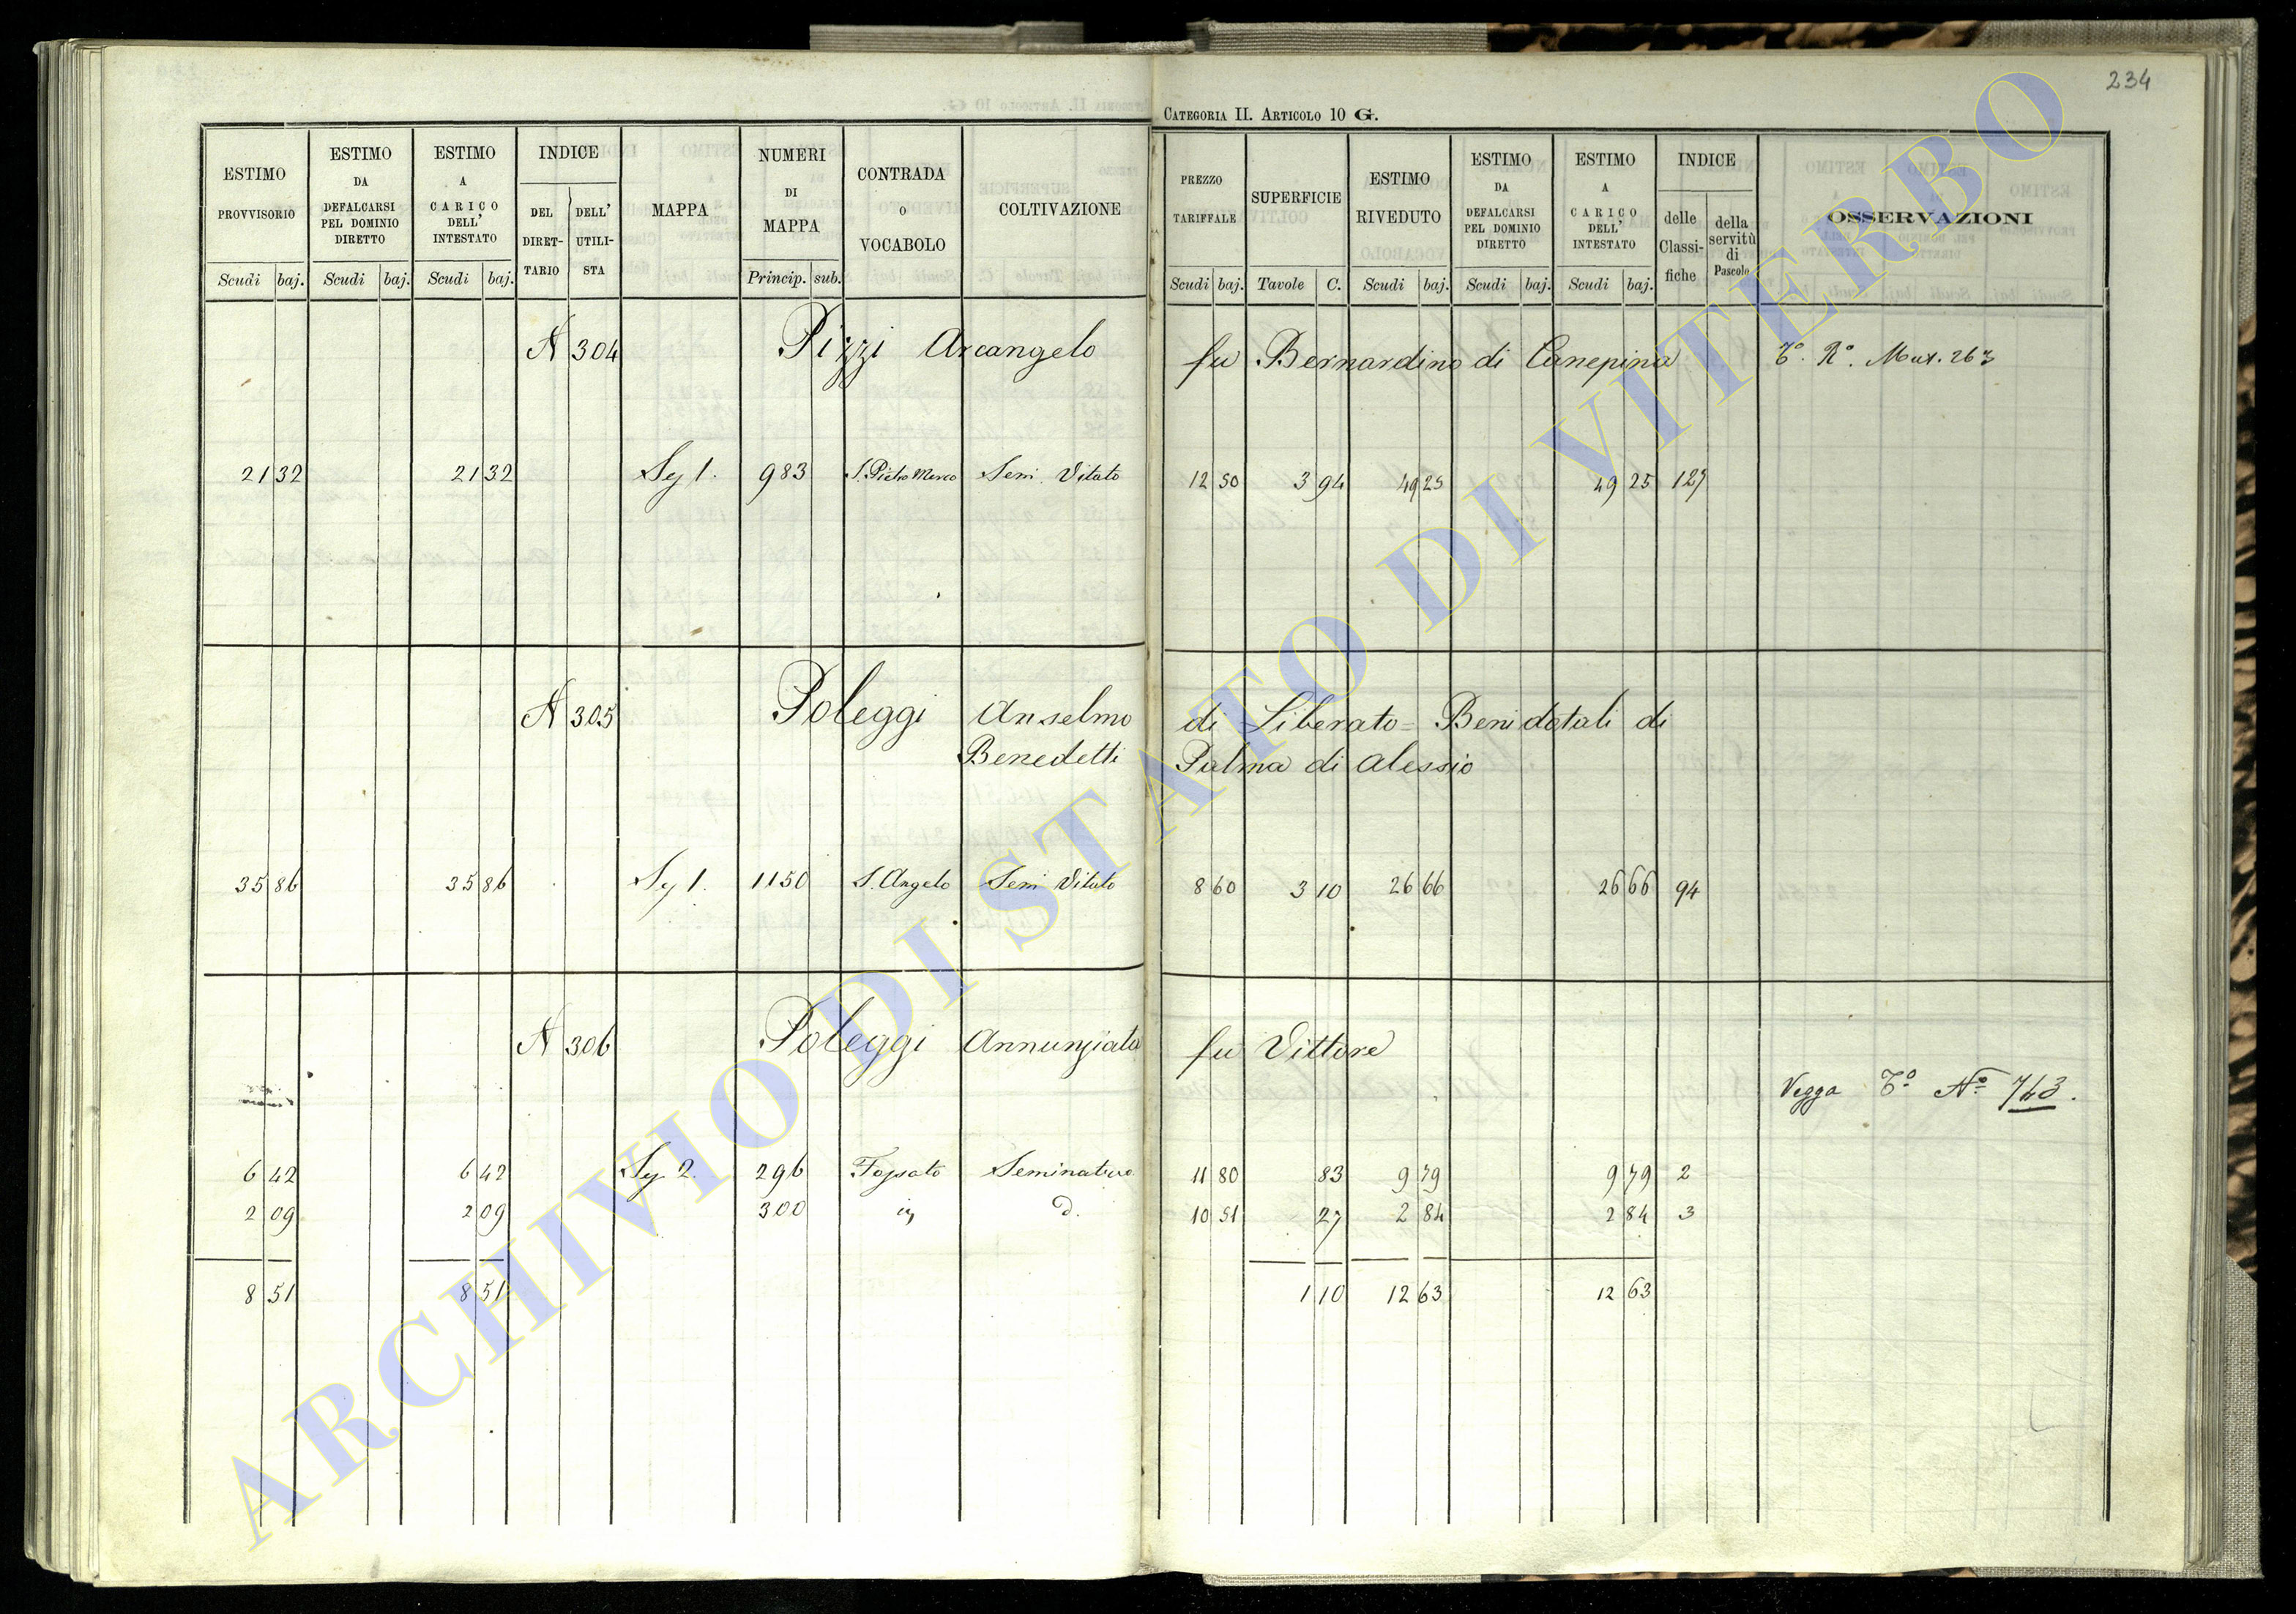 234
CATEGORIA II. ARTICOLO 10 G.
ESTIMO PROVVISORIO Scudi baj.
ESTIMO DA DEFALCARSI PEL DOMINIO DIRETTO Scudi baj.
ESTIMO A CARICO DELL' INTESTATO Scudi baj.
INDICE DEL DIRETTARIO DELL' UTILISTA
MAPPA
NUMERI DI MAPPA Princip. sub.
CONTRADA O VOCABOLO
COLTIVAZIONE
PREZZO TARIFFALE Scudi baj.
SUPERFICIE Tavole C.
ESTIMO RIVEDUTO Scudi baj.
ESTIMO DA DEFALCARSI PEL DOMINIO DIRETTO Scudi baj.
ESTIMO A CARICO DELL' INTESTATO Scudi baj.
INDICE delle Classifiche della servitù di Pascolo
OSSERVAZIONI
N 304 Pizzi Arcangelo fu Bernardino di Canepina
21 32 21 32 Sez 1. 983 S. Pietro Semi Vitato 12 50 3 94 49 25 49 25 127
N 305 Poleggi Anselmo di Liberato = Beni dotali di
Benedetti Palma di Alessio
35 86 35 86 Sez 1. 1150 S. Angelo Semi Vitato 8 60 3 10 26 66 26 66 94
N 306 Poleggi Annunziata fu Vittore
Vegga To No 743.
6 42 6 42 Sez 2. 296 Fossato Seminativo 11 80 83 9 79 9 79 2
2 09 2 09 300 d. 10 51 27 2 84 2 84 3
8 51 8 51 1 10 12 63 12 63
ARCHIVIO DI STATO DI VITERBO